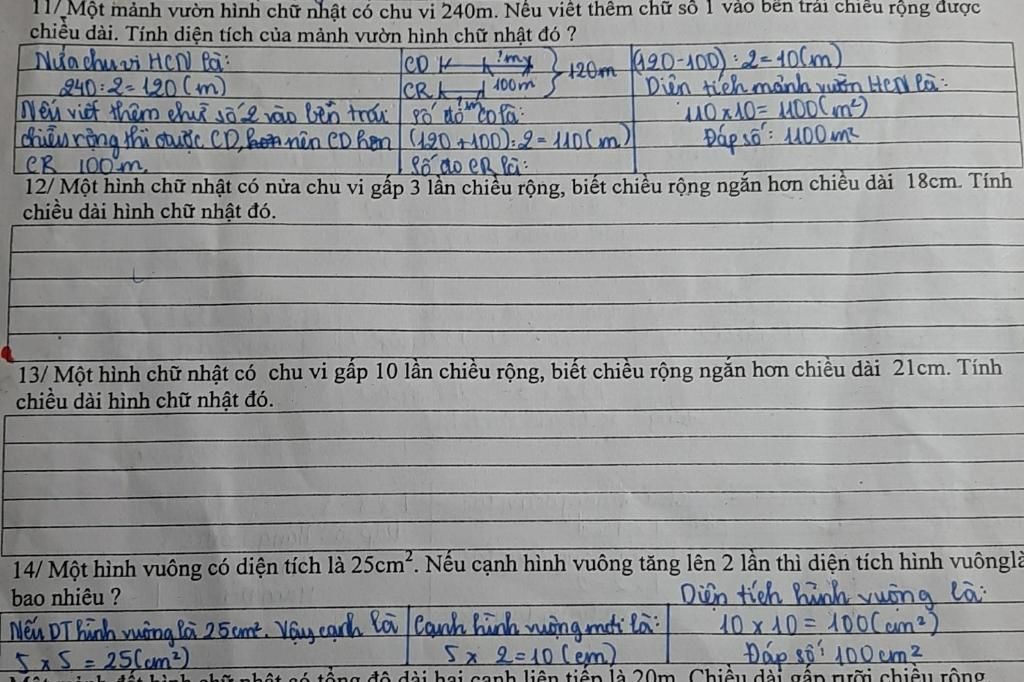 11/ Một mảnh vườn hình chữ nhật có chu vi 240m. Nếu viết thêm chữ số 1 vào bên trái chiều rộng được
chiều dài. Tính diện tích của mảnh vườn hình chữ nhật đó ?
Nửa chu vi HCN là:
240 : 2 = 120 (m)
Nếu viết thêm chữ số 2 vào bên trái
chiều rộng thì được CD, nên CD hơn
CR 100 m.
CD ?m
CR ?m 100m } 120m
Số đo CD là:
(120 + 100) : 2 = 110 (m)
Số đo CR là:
(120 - 100) : 2 = 10 (m)
Diện tích mảnh vườn HCN là:
110 x 10 = 1100 (m²)
Đáp số : 1100 m²
12/ Một hình chữ nhật có nửa chu vi gấp 3 lần chiều rộng, biết chiều rộng ngắn hơn chiều dài 18cm. Tính
chiều dài hình chữ nhật đó.
13/ Một hình chữ nhật có chu vi gấp 10 lần chiều rộng, biết chiều rộng ngắn hơn chiều dài 21cm. Tính
chiều dài hình chữ nhật đó.
14/ Một hình vuông có diện tích là 25cm². Nếu cạnh hình vuông tăng lên 2 lần thì diện tích hình vuônglà
bao nhiêu ?
Nếu DT hình vuông là 25cm². Vậy cạnh là
5 x 5 = 25 (cm²)
Cạnh hình vuông mới là:
5 x 2 = 10 (cm)
Diện tích hình vuông là:
10 x 10 = 100 (cm²)
Đáp số : 100 cm²
đất hình chữ nhật có tổng độ dài hai cạnh liên tiếp là 20m. Chiều dài gấp rưỡi chiều rộng